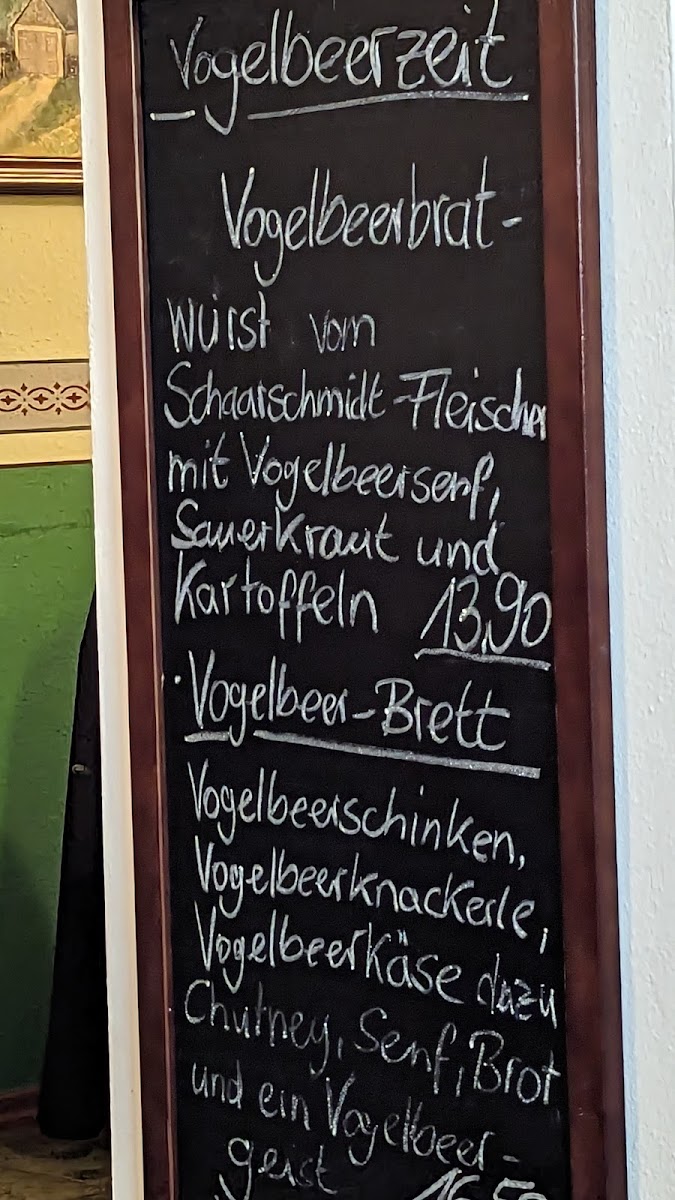 Vogelbeerzeit
Vogelbeerbrat-
wurst vom
Schaarschmidt-Fleischer
mit Vogelbeersenf,
Sauerkraut und
Kartoffeln 13,90
· Vogelbeer-Brett
Vogelbeerschinken,
Vogelbeerknackerle,
Vogelbeerkäse dazu
Chutney, Senf, Brot
und ein Vogelbeer-
geist